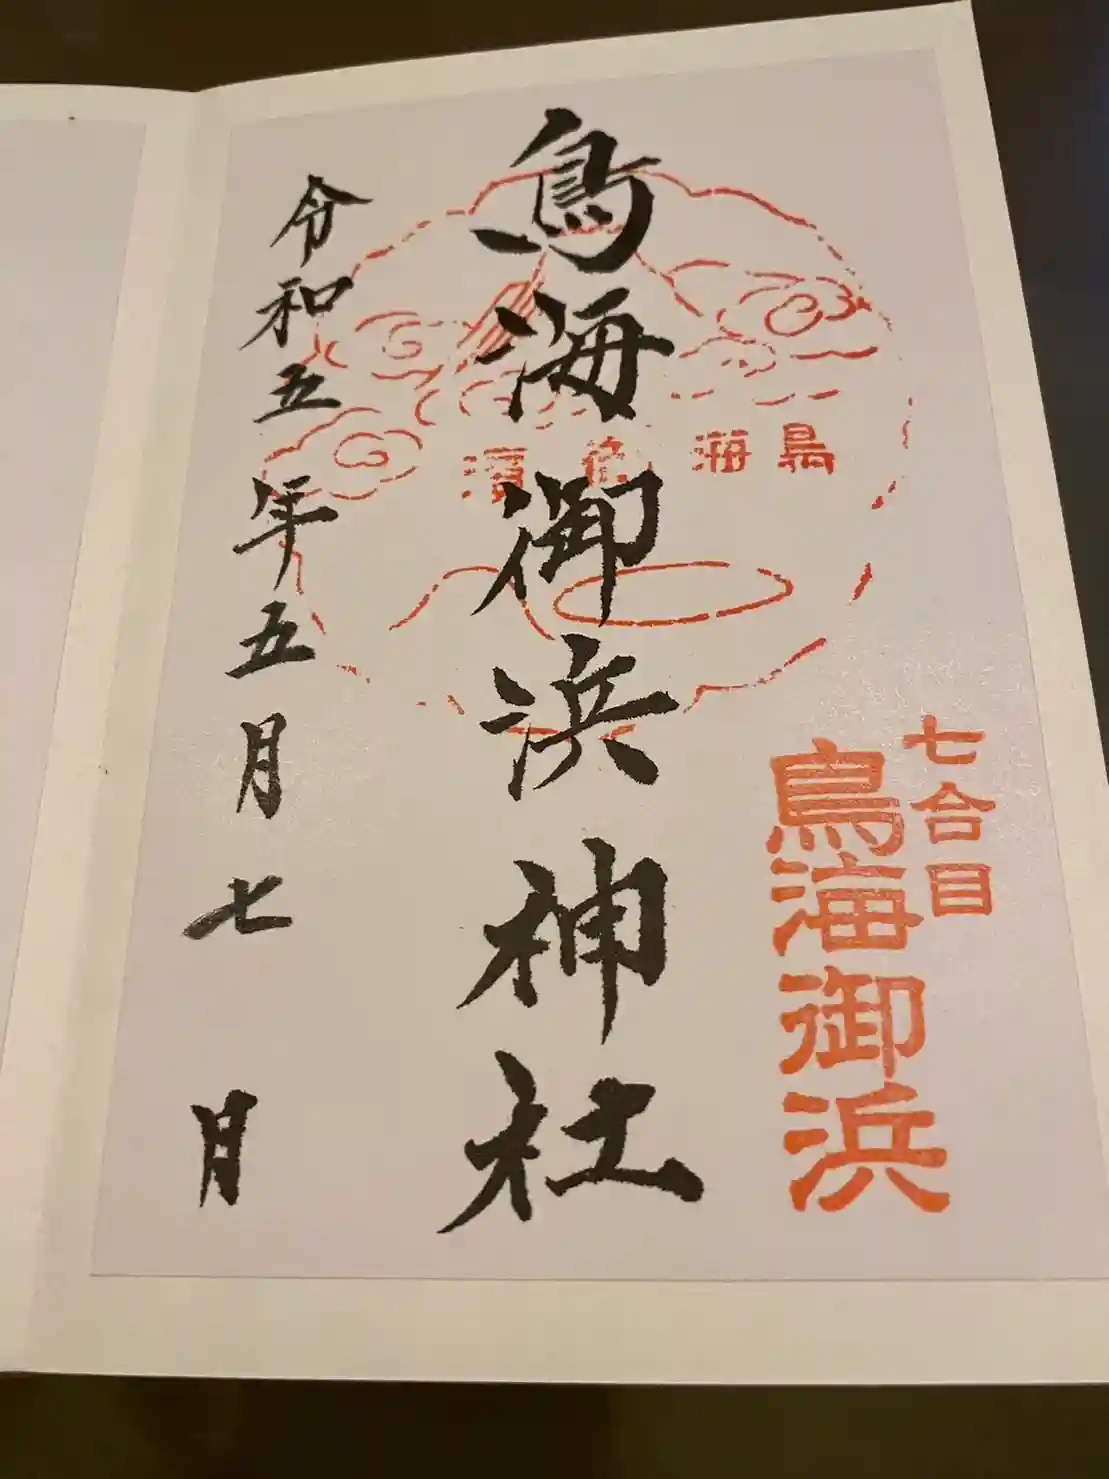 七合目
鳥海御浜
鳥海御浜神社
鳥海御濱
令和五年五月七月